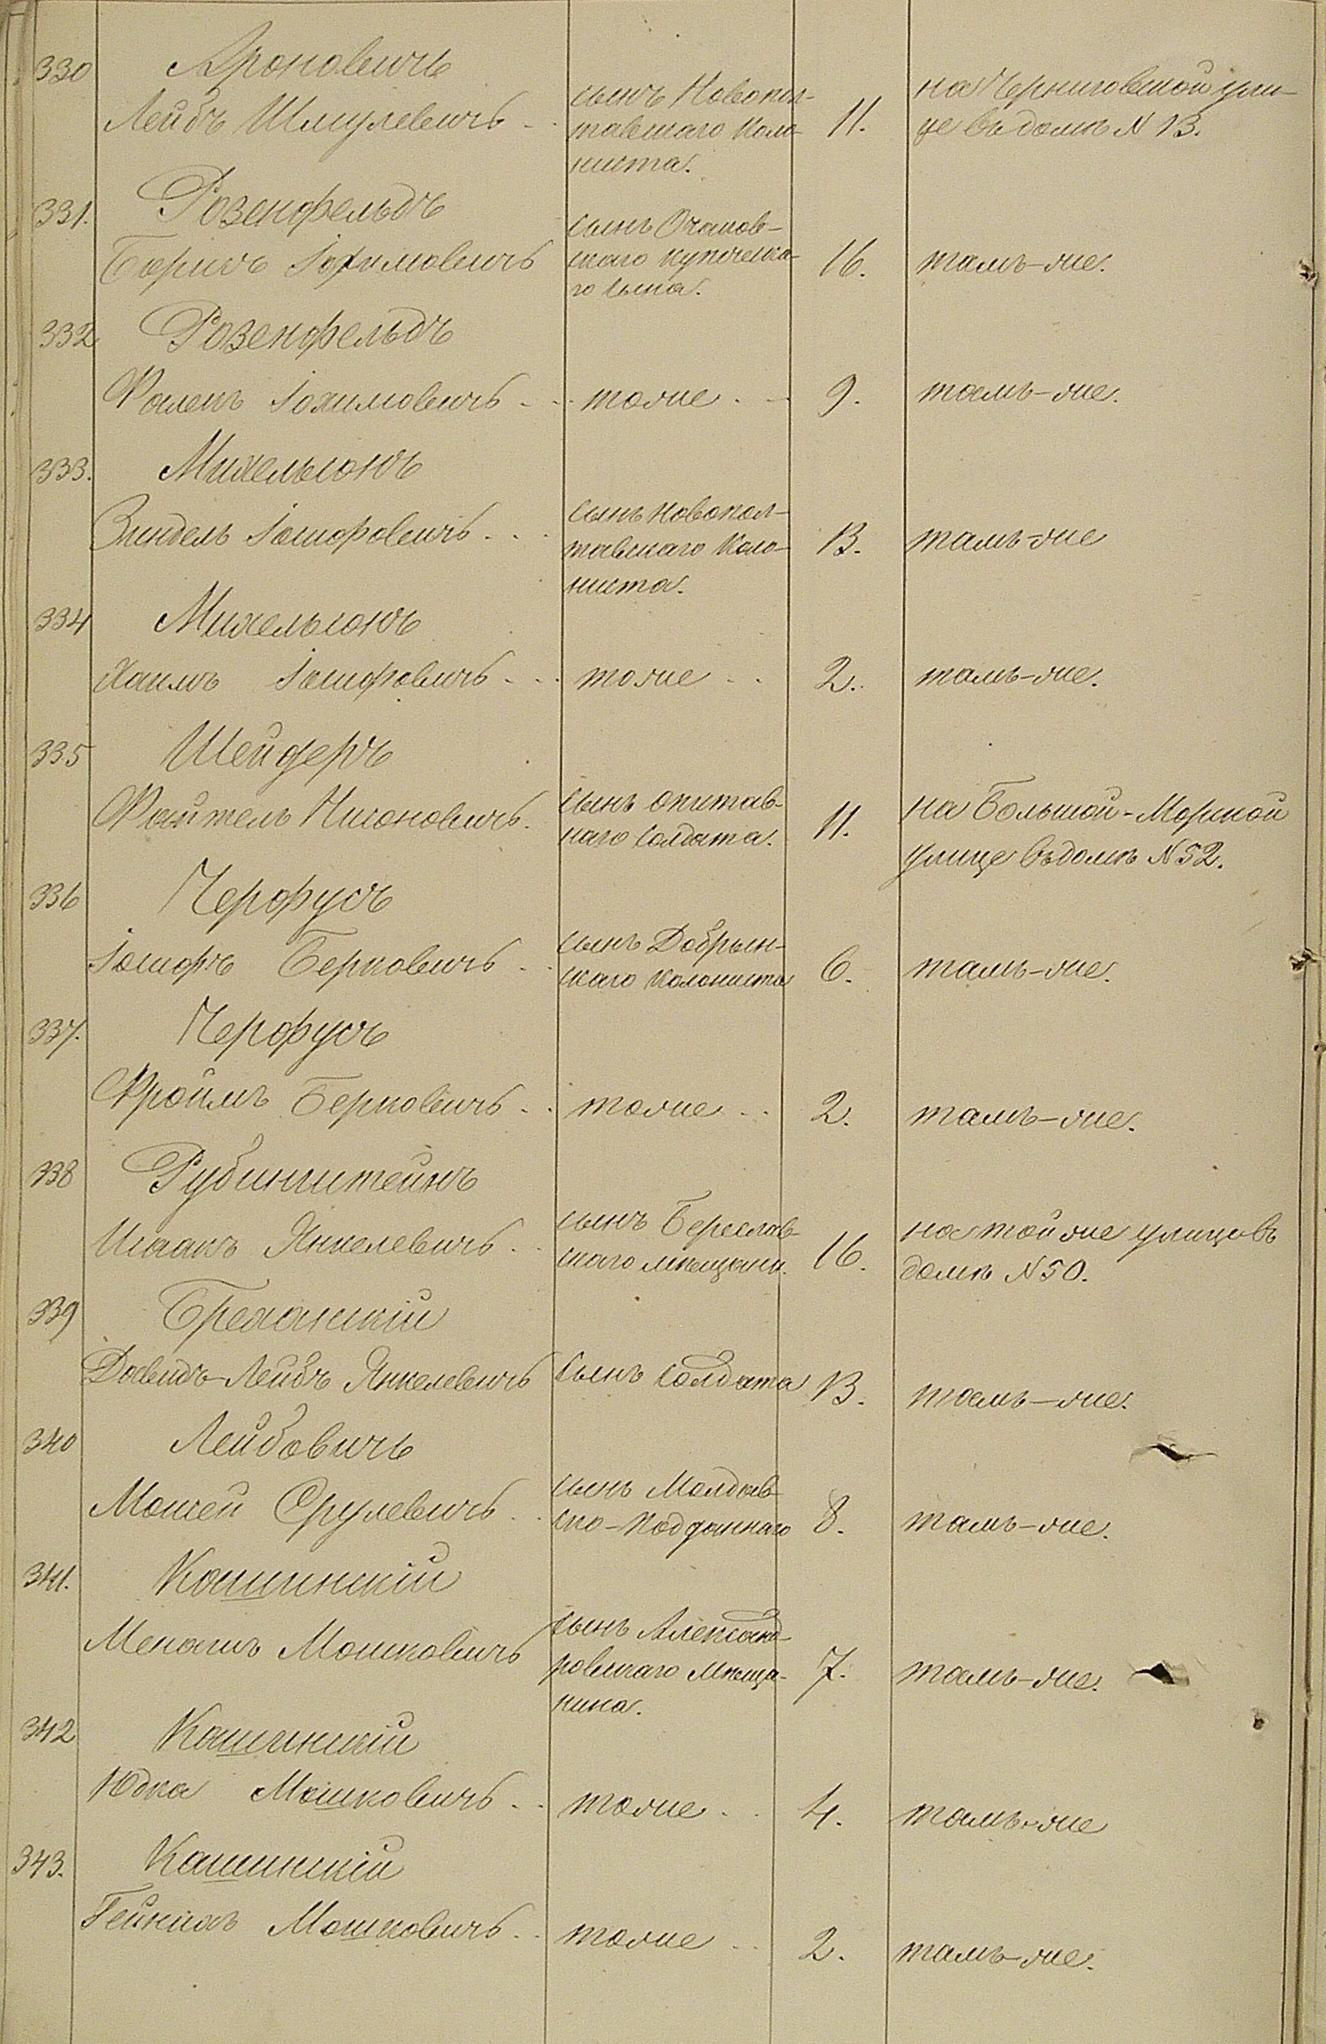 330 Ароновичъ
Лейбъ Шмулевичъ
сынъ Новопол-
тавскаго Коло-
ниста.
11.
на Черниговской ули-
це въ домѣ N 13.
331. Розенфельдъ
Борисъ Іохимовичъ
сынъ Очаков-
скаго купеческа-
го сына.
16.
тамъ-же.
332 Розенфельдъ
Фалекъ Іохимовичъ
тоже
9.
тамъ-же.
333. Михельсонъ
Зиндель Іосифовичъ
сынъ Новопол-
тавскаго Коло-
ниста.
13.
тамъ-же
334 Михельсонъ
Хаимъ Іосифовичъ
тоже
2.
тамъ-же.
335 Шейдеръ
Файтель Нисоновичъ.
сынъ отстав-
наго Солдата.
11.
на Большой-Морской
улице въ домѣ N 52.
336 Черфусъ
Іосифъ Берковичъ
сынъ Добрын-
скаго Колониста
6.
тамъ-же.
337. Черфусъ
Фроимъ Берковичъ
тоже
2.
тамъ-же.
338 Рубинштейнъ
Исаакъ Янкелевичъ
сынъ Береслав-
скаго мещани.
16.
на той же улице въ
домѣ N 50.
339 Греханскій
Давидъ-Лейбъ Янкелевичъ
сынъ Солдата
13.
тамъ-же.
340 Лейбовичъ
Мошей Срулевичъ
сынъ Молдав-
ско-Подданнаго
8.
тамъ-же.
341. Кошинскій
Менашъ Мошковичъ
сынъ Александ-
ровскаго Мѣща-
нина.
7.
тамъ-же.
342 Кашинскій
Юдка Мошковичъ
тоже
4.
тамъ-же
343. Кашинскій
Гейнихъ Мошковичъ
тоже
2.
тамъ-же.